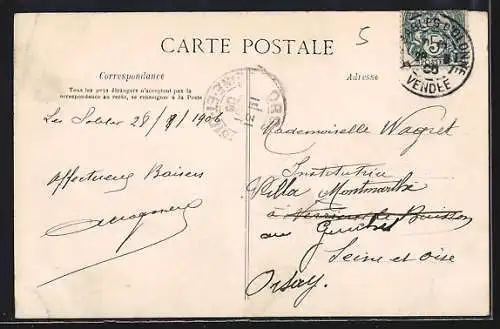 CARTE POSTALE
5
Correspondance
Adresse
Tous les pays étrangers n'acceptent pas la
correspondance au recto, se renseigner à la Poste
VENDÉE
Les Sables 28/9/1906
Affectueux Baisers
Mademoiselle Wagret
Institutrice
Villa Montmarthe
à Verrières le Buisson
au Guichet
Seine et Oise
Orsay.